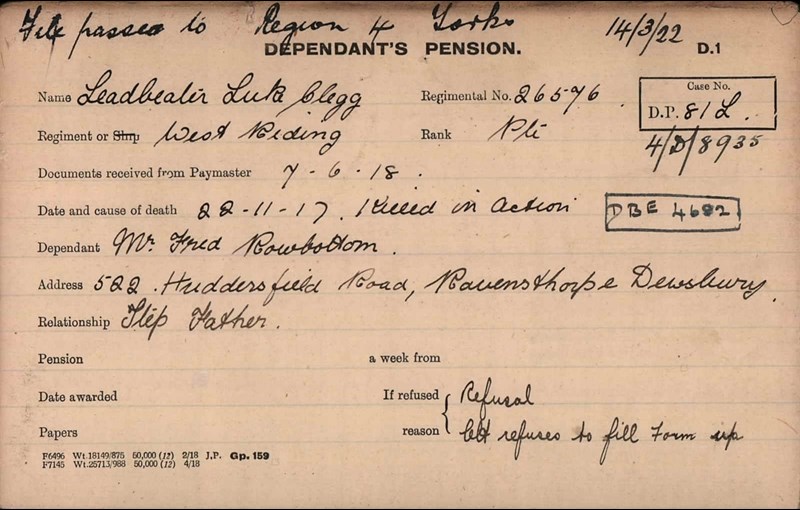 File passed to Region 4 Yorks 14/3/22
DEPENDANT'S PENSION. D.1
Name Leadbeater Luke Clegg Regimental No. 26576 Case No.
D.P. 81 L.
Regiment or Ship West Riding Rank Pte 4/D/8935
Documents received from Paymaster 7-6-18.
Date and cause of death 22-11-17. Killed in Action DBE 4682
Dependant Mr Fred Rowbottom.
Address 522 Huddersfield Road, Ravensthorpe Dewsbury
Relationship Step Father.
Pension a week from
Date awarded If refused Refusal
Papers reason refuses to fill Form up
F6496 Wt.18149/875 50,000 (12) 2/18 J.P. Gp. 159
F7145 Wt.25713/988 50,000 (12) 4/18